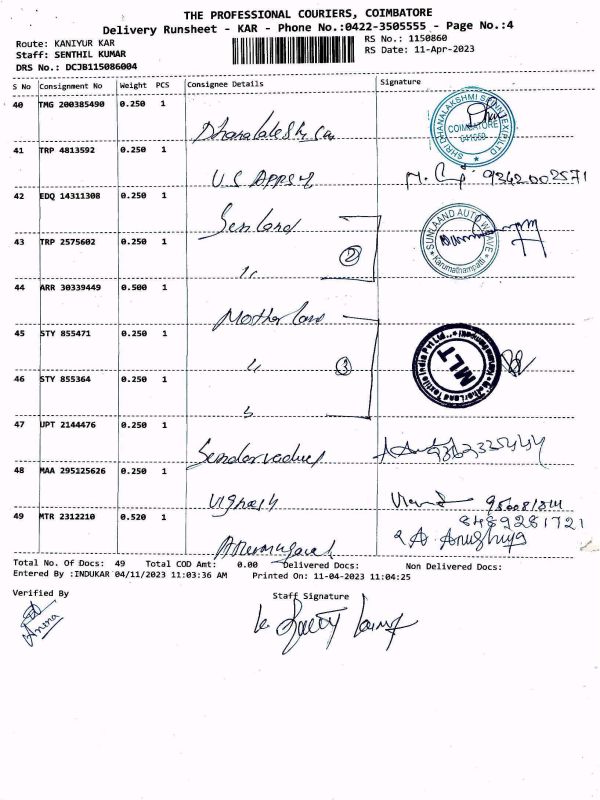 THE PROFESSIONAL COURIERS, COIMBATORE
Delivery Runsheet - KAR - Phone No.:0422-3505555 - Page No.:4
Route: KANIYUR KAR
Staff: SENTHIL KUMAR
DRS No.: DCJB115086004
RS No.: 1150860
RS Date: 11-Apr-2023
S No Consignment No Weight PCS Consignee Details Signature
40 TMG 200385490 0.250 1
COIMBATORE
41 TRP 4813592 0.250 1
9342002571
42 EDQ 14311308 0.250 1
SUNLAAND AUTO WEAVE
Karumathampatti
43 TRP 2575602 0.250 1
2
44 ARR 30339449 0.500 1
Motherland
45 STY 855471 0.250 1
MLT
3
46 STY 855364 0.250 1
47 UPT 2144476 0.250 1
48 MAA 295125626 0.250 1
Vignesh
49 MTR 2312210 0.520 1
8489281721
Total No. Of Docs: 49 Total COD Amt: 0.00 Delivered Docs: Non Delivered Docs:
Entered By :INDUKAR 04/11/2023 11:03:36 AM Printed On: 11-04-2023 11:04:25
Verified By
Staff Signature